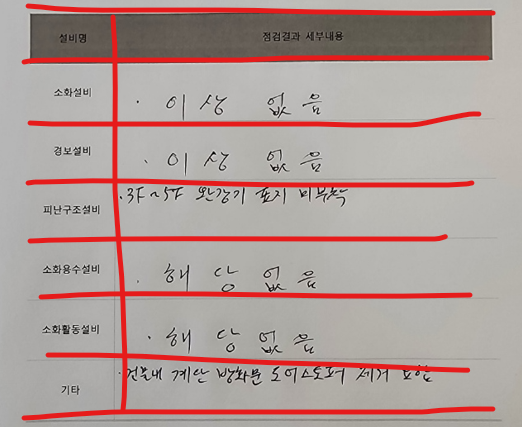 설비명 점검결과 세부내용
소화설비 · 이상 없음
경보설비 · 이상 없음
피난구조설비 · 3F~5F 완강기 표지 미부착
소화용수설비 · 해당없음
소화활동설비 · 해당없음
기타 · 건물내 계단 방화문 도어스토퍼 제거 요함